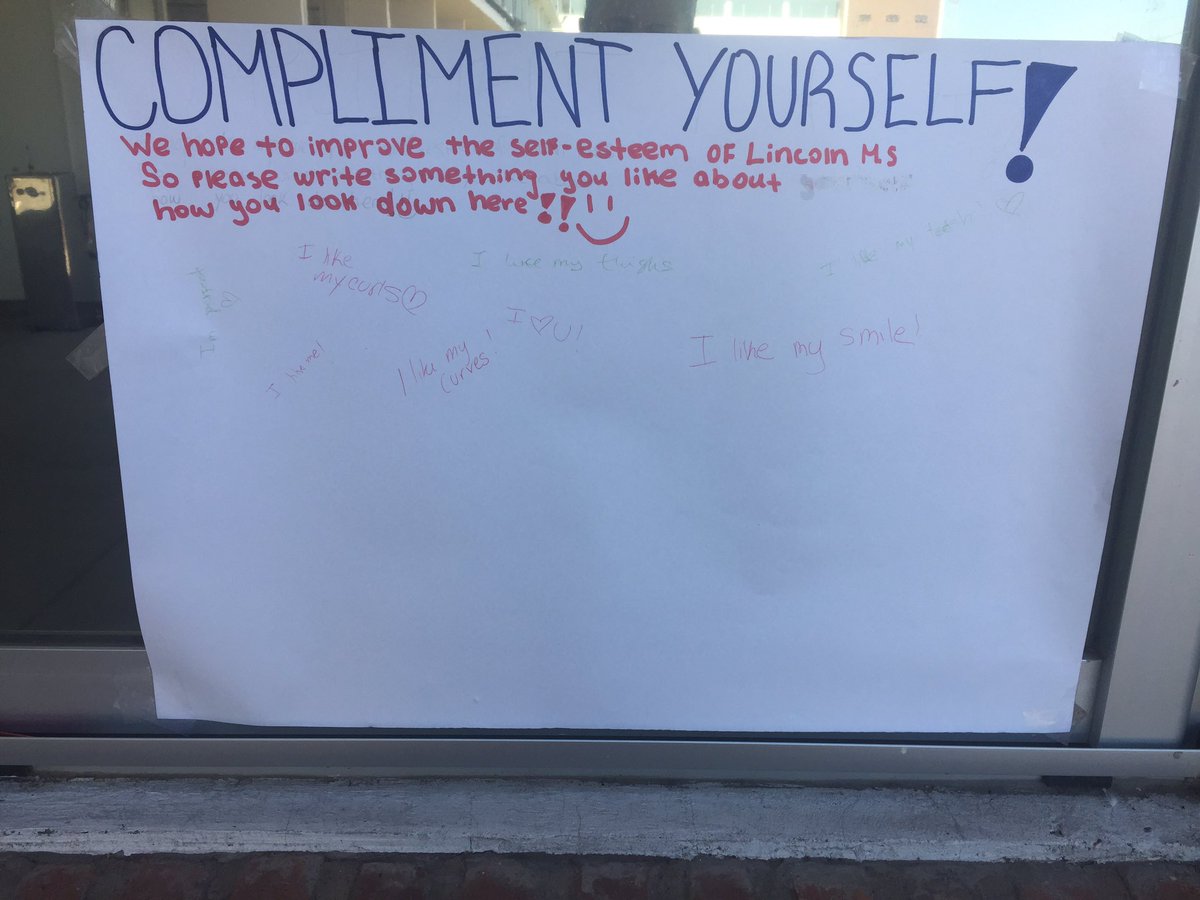 COMPLIMENT YOURSELF!
We hope to improve the self-esteem of Lincoln MS
So please write something you like about
how you look down here!!
I like
my curls♡
I like my thighs
I like my
I ♡ U!
I like my smile!
I like me!
I like my
curves!